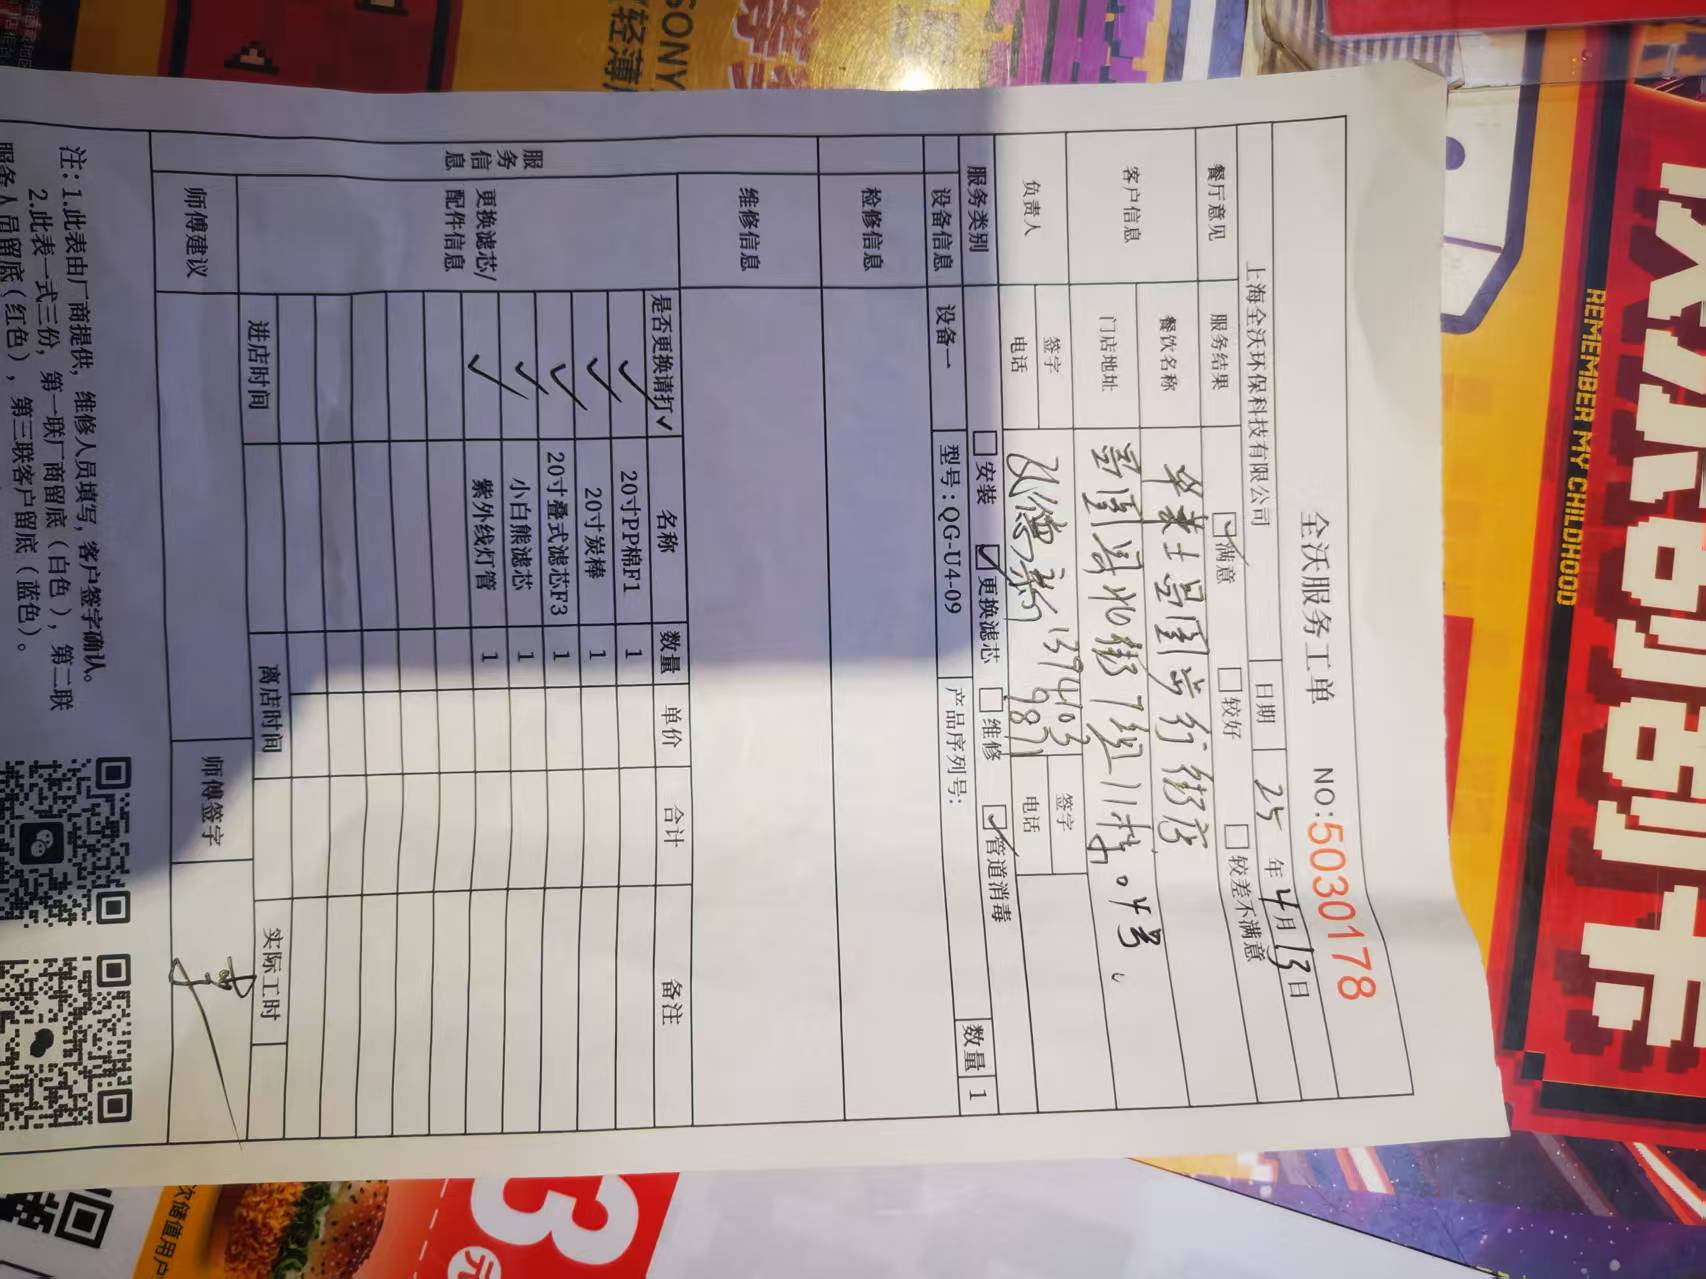 全沃服务工单 NO:5030178
上海全沃环保科技有限公司 日期 25 年 4 月 13 日
餐厅意见 服务结果 ☑满意 □较好 □较差不满意
客户信息 餐饮名称 华莱士景园步行街店
门店地址 景园 北街7 11栋 号
负责人 签字 签字
电话 1394039871 电话
服务类别 □安装 ☑更换滤芯 □维修 ☑管道消毒
设备信息 设备一 型号:QG-U4-09 产品序列号: 数量 1
服务信息
检修信息
维修信息
更换滤芯/配件信息
是否更换请打✓ 名称 数量 单价 合计 备注
✓ 20寸PP棉F1 1
✓ 20寸炭棒 1
✓ 20寸叠式滤芯F3 1
✓ 小白熊滤芯 1
✓ 紫外线灯管 1
进店时间 离店时间 实际工时
师傅建议 师傅签字
注:1.此表由厂商提供,维修人员填写,客户签字确认。
2.此表一式三份,第一联厂商留底(白色),第二联
服务人员留底(红色),第三联客户留底(蓝色)。
SONY
轻薄
REMEMBER MY CHILDHOOD
3
元
次储值用户